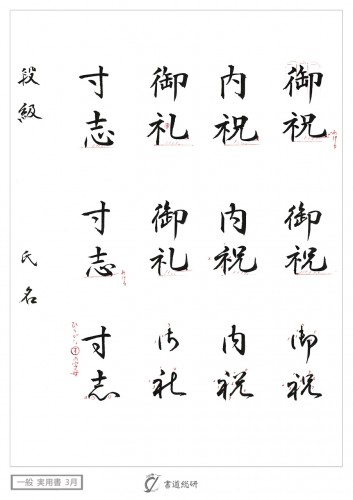 御祝 御祝 御祝
内祝 内祝 内祝
御礼 御礼 御礼
寸志 寸志 寸志
ひらがなすの字母
段級 氏名
一般 実用書 3月
書道総研